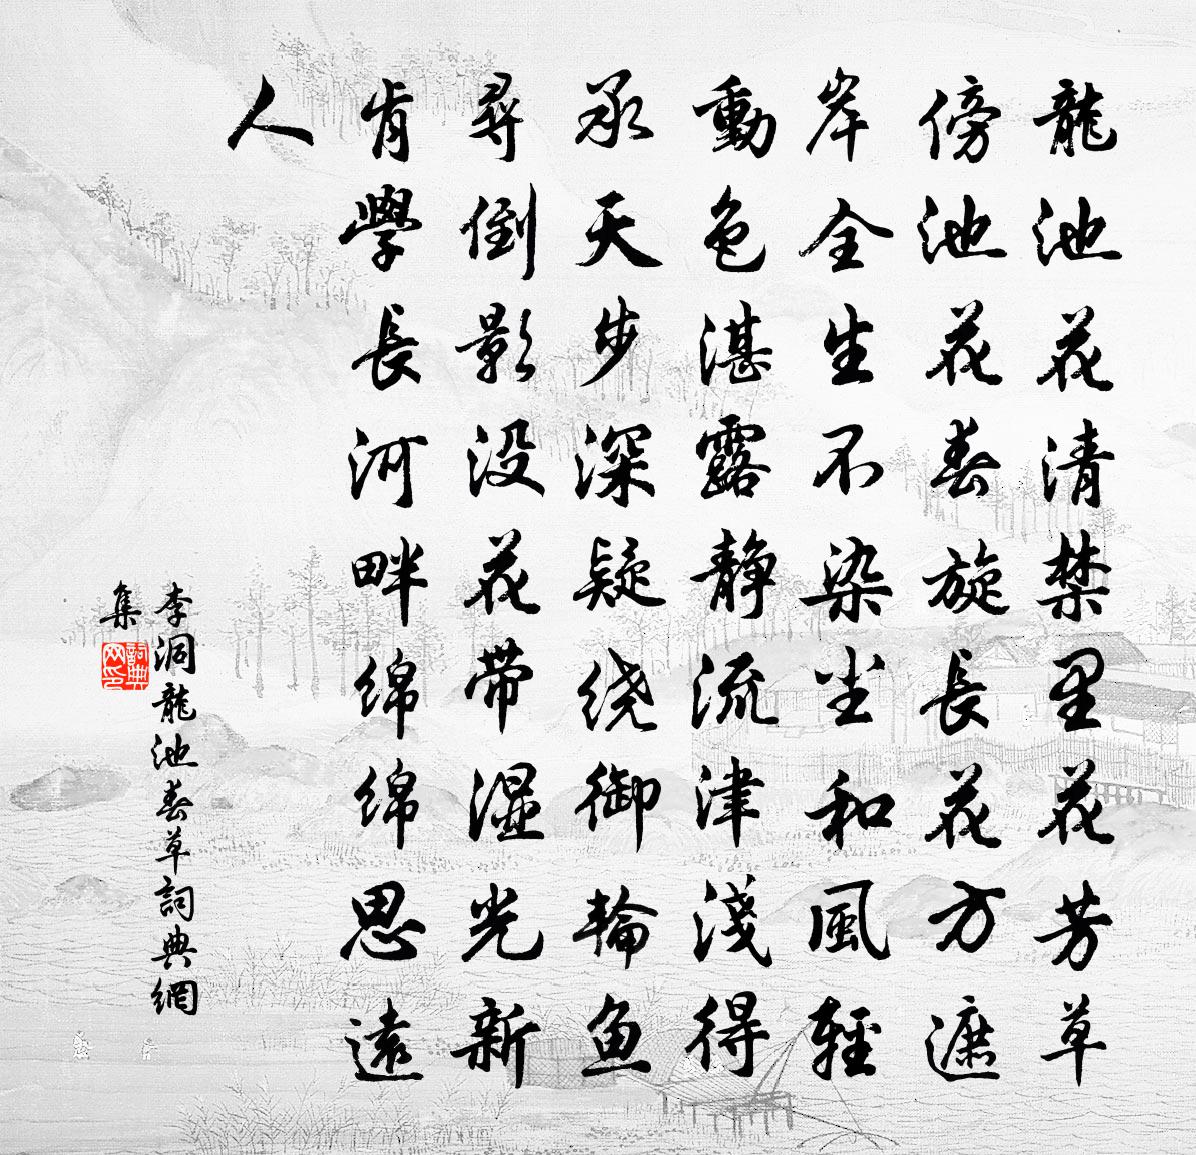 龍池花清禁里花芳草
傍池花春旋長花方遮
岸全生不染尘和風輕
動色湛露静流津淺得
承天步深疑绕御輪鱼
尋倒影没花带湿光新
肯學長河畔绵绵思遠
人
李洞龍池春草詞典網
集
詞典网印